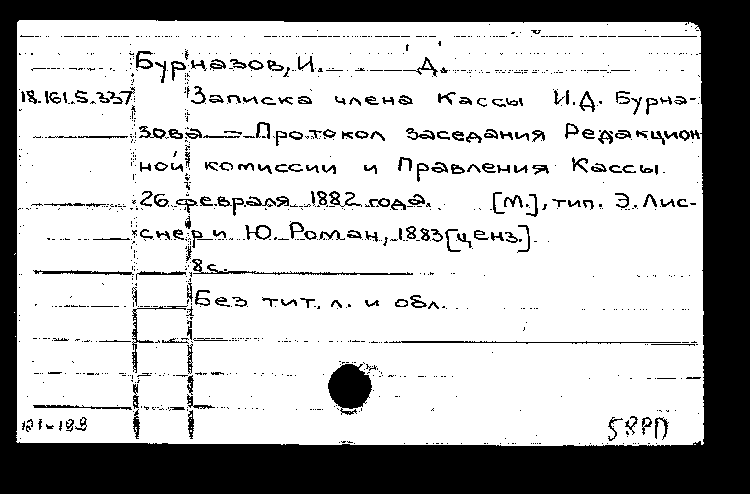 Бурназов, И. Д.
18.161.5.337 Записка члена Кассы И.Д. Бурна-
зова. — Протокол заседания Редакцион
ной комиссии и Правления Кассы
26 февраля 1882 года. [М.], тип. Э. Лис-
снер и Ю. Роман, 1883 [ценз.].
8 с.
Без тит. л. и обл.
58РП